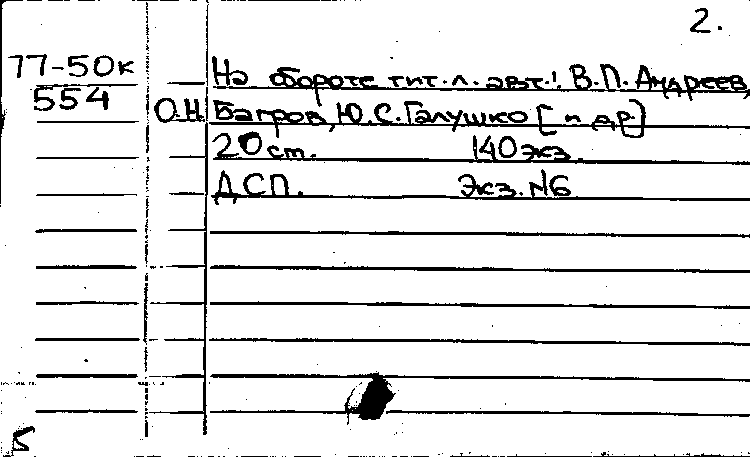 2.
77-50к На обороте тит. л. авт.: В.П. Андреев,
554 О.Н. Багров, Ю.С. Галушко [и др.]
20 ст. 140 экз.
ДСП. Экз. N6
Б